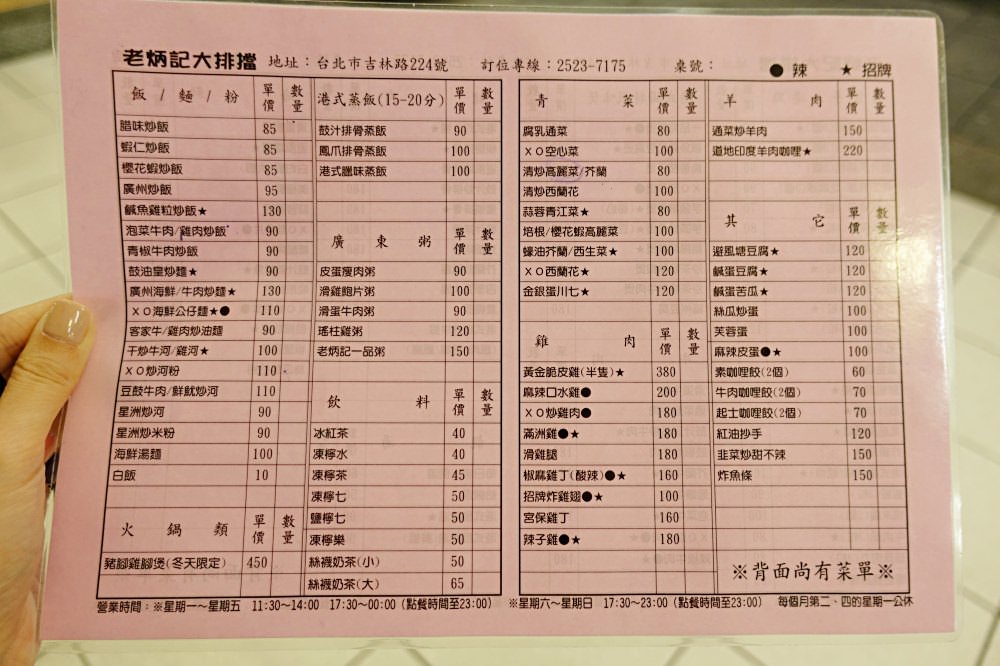 老炳記大排擋 地址：台北市吉林路224號 訂位專線：2523-7175 桌號： ●辣 ★招牌
飯/麵/粉 單價 數量
腊味炒飯 85
蝦仁炒飯 85
櫻花蝦炒飯 85
廣州炒飯 95
鹹魚雞粒炒飯★ 130
泡菜牛肉/雞肉炒飯 90
青椒牛肉炒飯 90
鼓油皇炒麵★ 90
廣州海鮮/牛肉炒麵★ 130
XO海鮮公仔麵★● 110
客家牛/雞肉炒油麵 90
干炒牛河/雞河★ 100
XO炒河粉 110
豆鼓牛肉/鮮魷炒河 110
星洲炒河 90
星洲炒米粉 90
海鮮湯麵 100
白飯 10
火鍋類 單價 數量
豬腳雞腳煲(冬天限定) 450
港式蒸飯(15-20分) 單價 數量
鼓汁排骨蒸飯 90
鳳爪排骨蒸飯 100
港式臘味蒸飯 100
廣東粥 單價 數量
皮蛋瘦肉粥 90
滑雞鮑片粥 100
滑蛋牛肉粥 90
瑤柱雞粥 120
老炳記一品粥 150
飲料 單價 數量
冰紅茶 40
凍檸水 40
凍檸茶 45
凍檸七 50
鹽檸七 50
凍檸樂 50
絲襪奶茶(小) 50
絲襪奶茶(大) 65
青菜 單價 數量
腐乳通菜 80
XO空心菜 100
清炒高麗菜/芥蘭 80
清炒西蘭花 100
蒜蓉青江菜★ 80
培根/櫻花蝦高麗菜 100
蠔油芥蘭/西生菜★ 100
XO西蘭花★ 120
金銀蛋川七★ 120
雞肉 單價 數量
黃金脆皮雞(半隻)★ 380
麻辣口水雞● 200
XO炒雞肉● 180
滿洲雞●★ 180
滑雞腿 180
椒麻雞丁(酸辣)●★ 160
招牌炸雞翅●★ 100
宮保雞丁 160
辣子雞●★ 180
羊肉 單價 數量
通菜炒羊肉 150
道地印度羊肉咖哩★ 220
其它 單價 數量
避風塘豆腐★ 120
鹹蛋豆腐★ 120
鹹蛋苦瓜★ 120
絲瓜炒蛋 100
芙蓉蛋 100
麻辣皮蛋●★ 100
素咖哩餃(2個) 60
牛肉咖哩餃(2個) 70
起士咖哩餃(2個) 70
紅油抄手 120
韭菜炒甜不辣 150
炸魚條 150
※背面尚有菜單※
營業時間：※星期一～星期五 11:30～14:00 17:30～00:00 (點餐時間至23:00) ※星期六～星期日 17:30～23:00 (點餐時間至23:00) 每個月第二、四的星期一公休